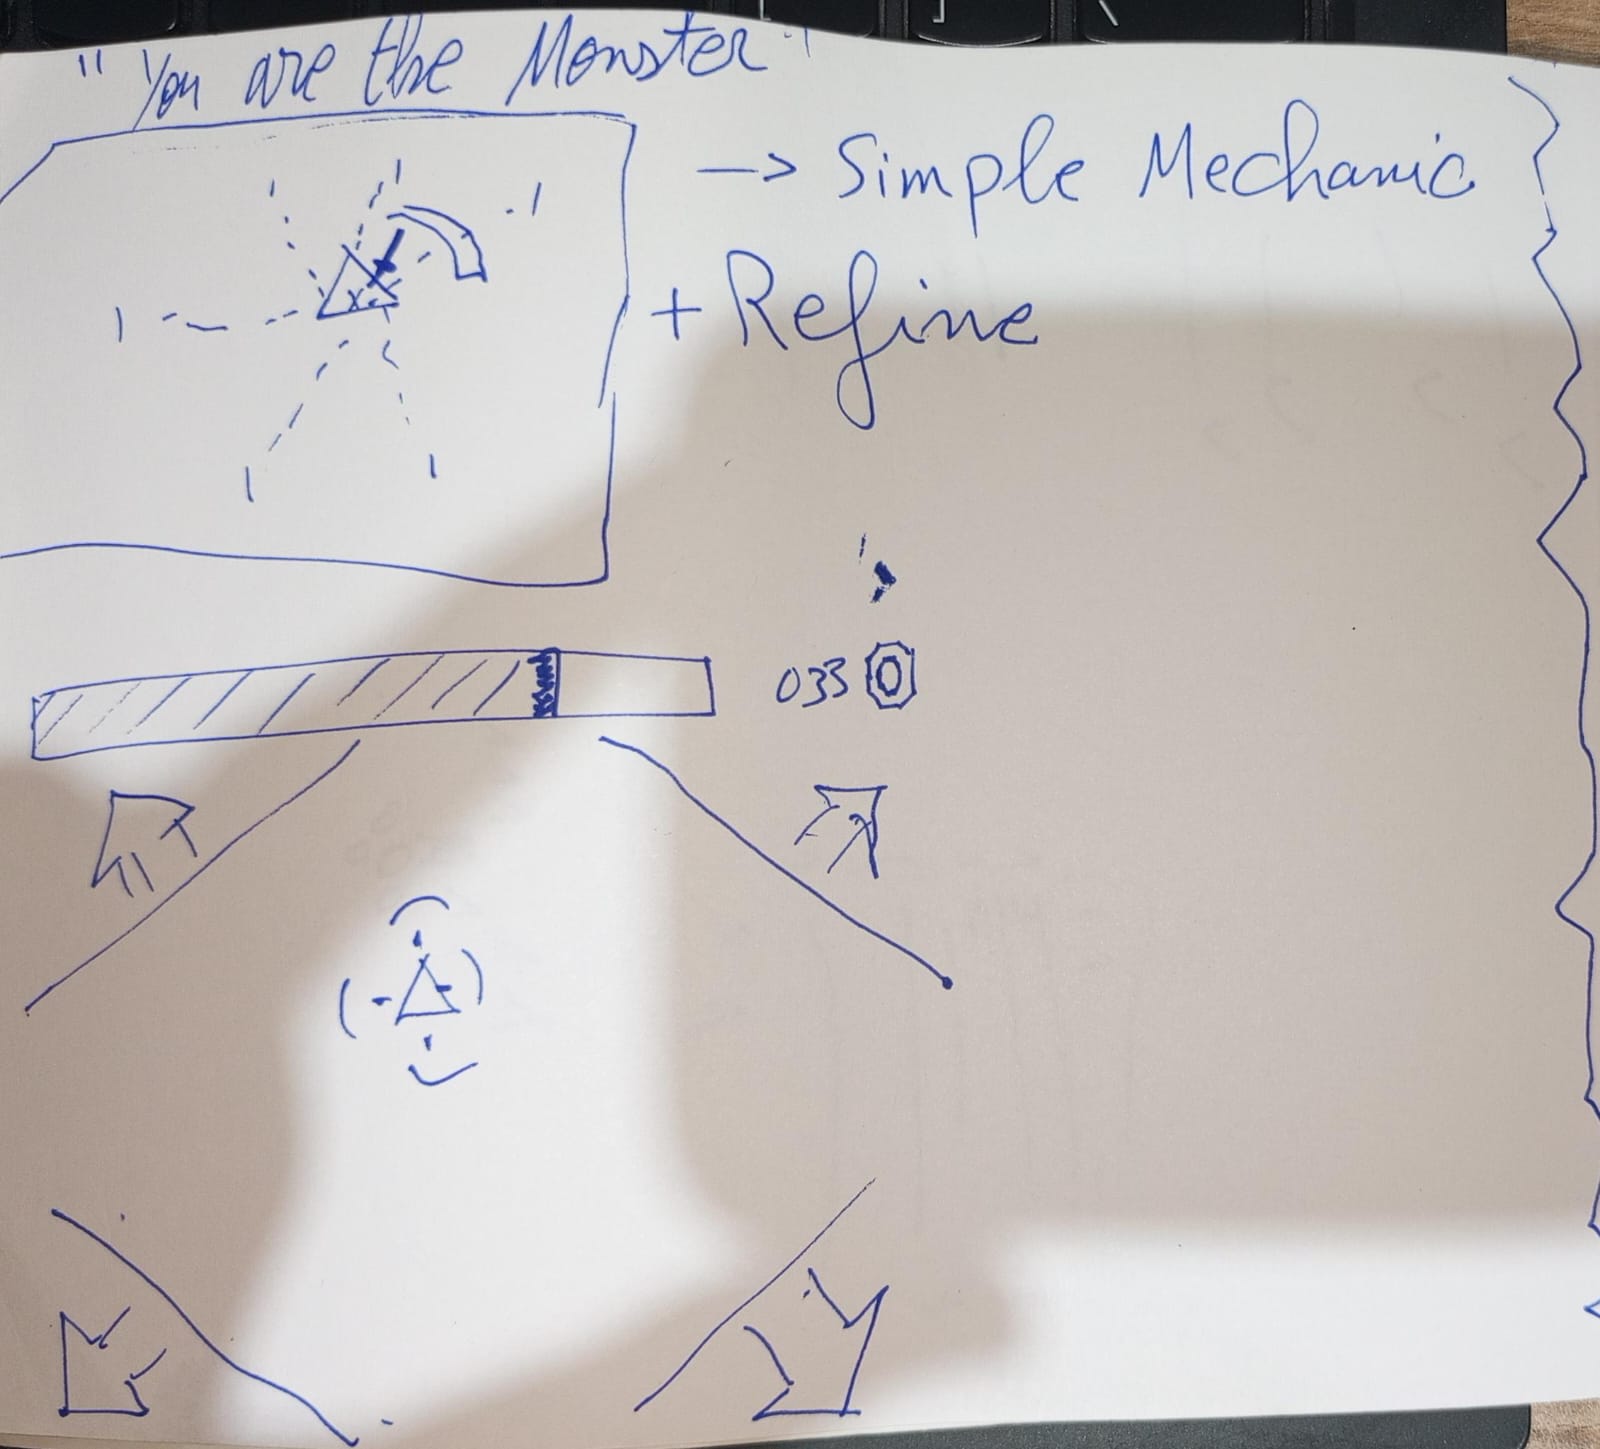 "You are the Monster"
→ Simple Mechanic
+ Refine
033